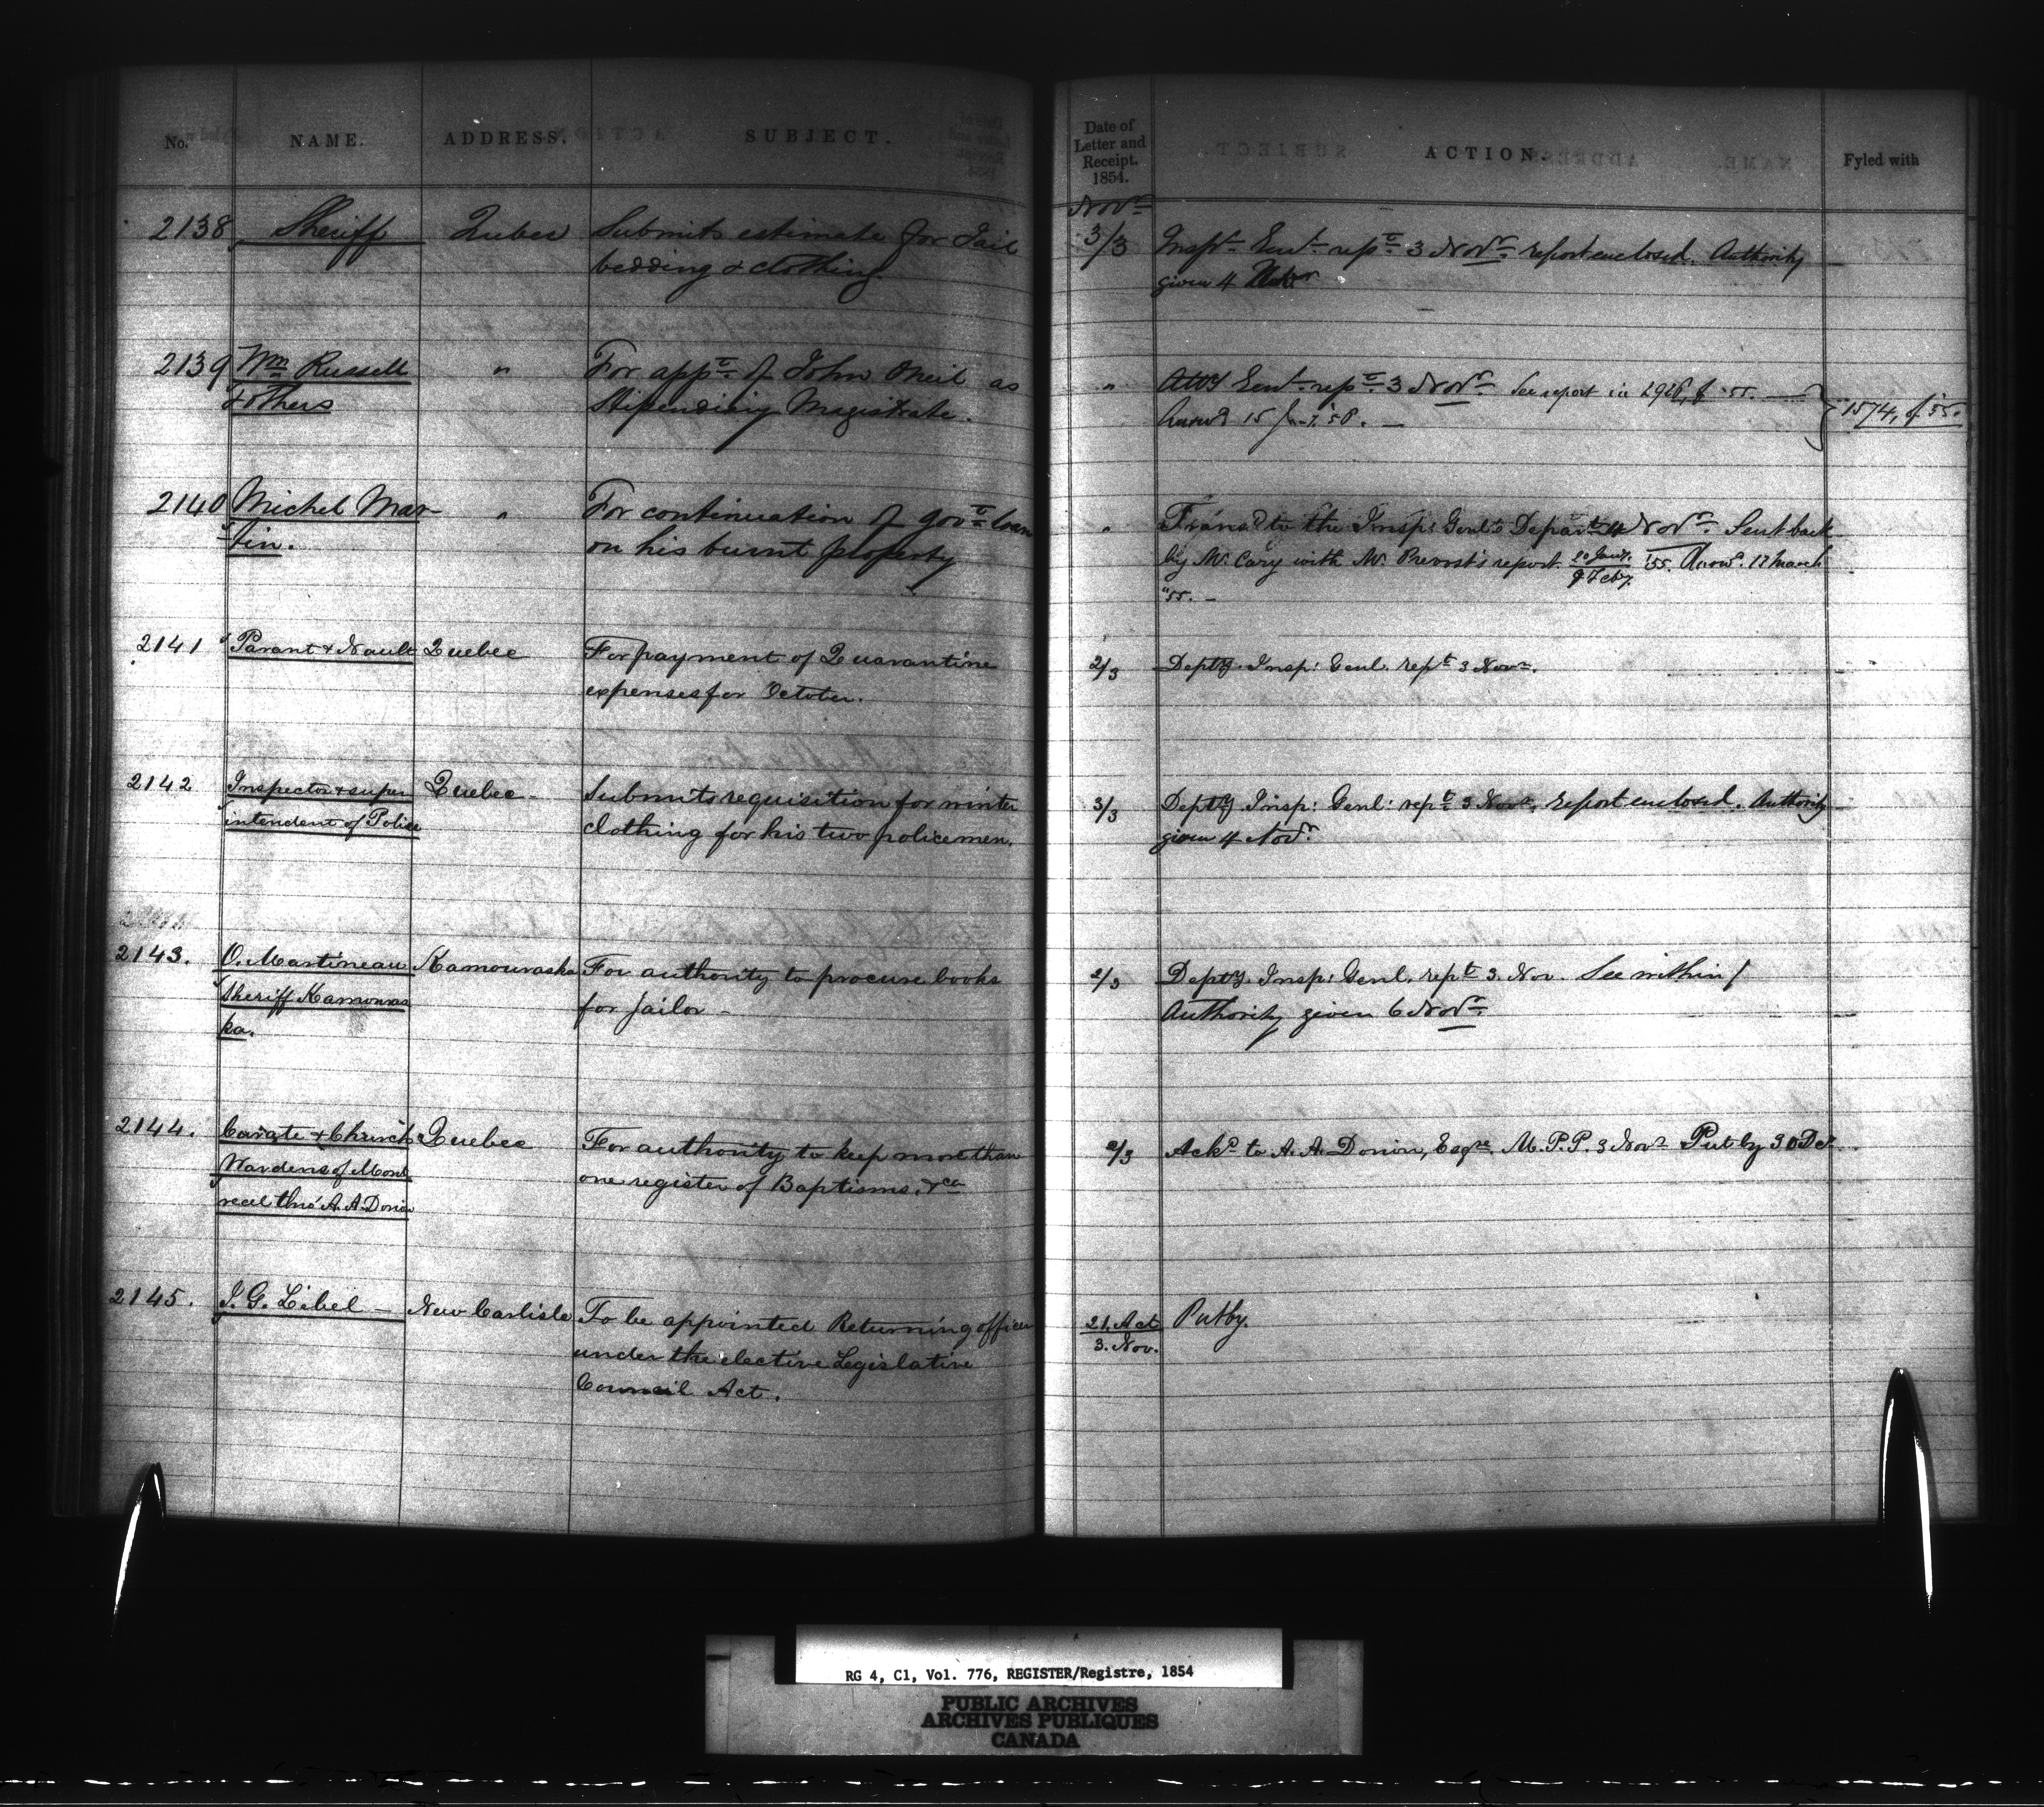 No. NAME. ADDRESS. SUBJECT.
2138 Sheriff Quebec Submits estimate for Jail
bedding & clothing
2139 Wm Russell " For appt. of John Oneil as
& others Stipendiary Magistrate.
2140 Michel Mar- " For continuation of govt loan
tin. on his burnt property
2141 Parant & Nault Quebec For payment of Quarantine
expenses for October.
2142 Inspector & super Quebec - Submits requisition for winter
intendent of Police clothing for his two policemen.
2143. O. Martineau Kamouraska For authority to procure books
Sheriff Kamouras for Jailor -
ka.
2144. & Church Quebec For authority to keep more than
Wardens of Mont one register of Baptisms, &ca
real thro' A. A. Dorion
2145. J. G. Libel - New Carlisle To be appointed Returning officer
under the elective Legislative
Council Act.
Date of
Letter and
Receipt.
1854. ACTION. Fyled with
Novr
3/3 Inspr Genl rept 3 Novr report enclosed. Authority
given 4
" Atty Genl rept 3 Novr See report in 2928, of '55.
15 1574, of '55.
" Transd to the Insp: Genl's Depart 4 Novr Sent back
by Mr. Cary with Mr. Prevost's report 20 Jany.
9 Feby. '55. Answd. 17 March
"55. -
2/3 Depty. Insp: Genl. rept 3 Novr.
3/3 Depty. Insp: Genl: rept 3 Novr, report enclosed. Authority
given 4 Novr.
2/3 Depty. Insp: Genl. rept 3. Nov. See within /
Authority given 6 Novr
2/3 Ackd to A. A. Dorion, Esqre. M.P.P. 3 Novr Put by 30 Dcr
21. Oct Put by.
3. Nov.
RG 4, C1, Vol. 776, REGISTER/Registre, 1854
PUBLIC ARCHIVES
ARCHIVES PUBLIQUES
CANADA